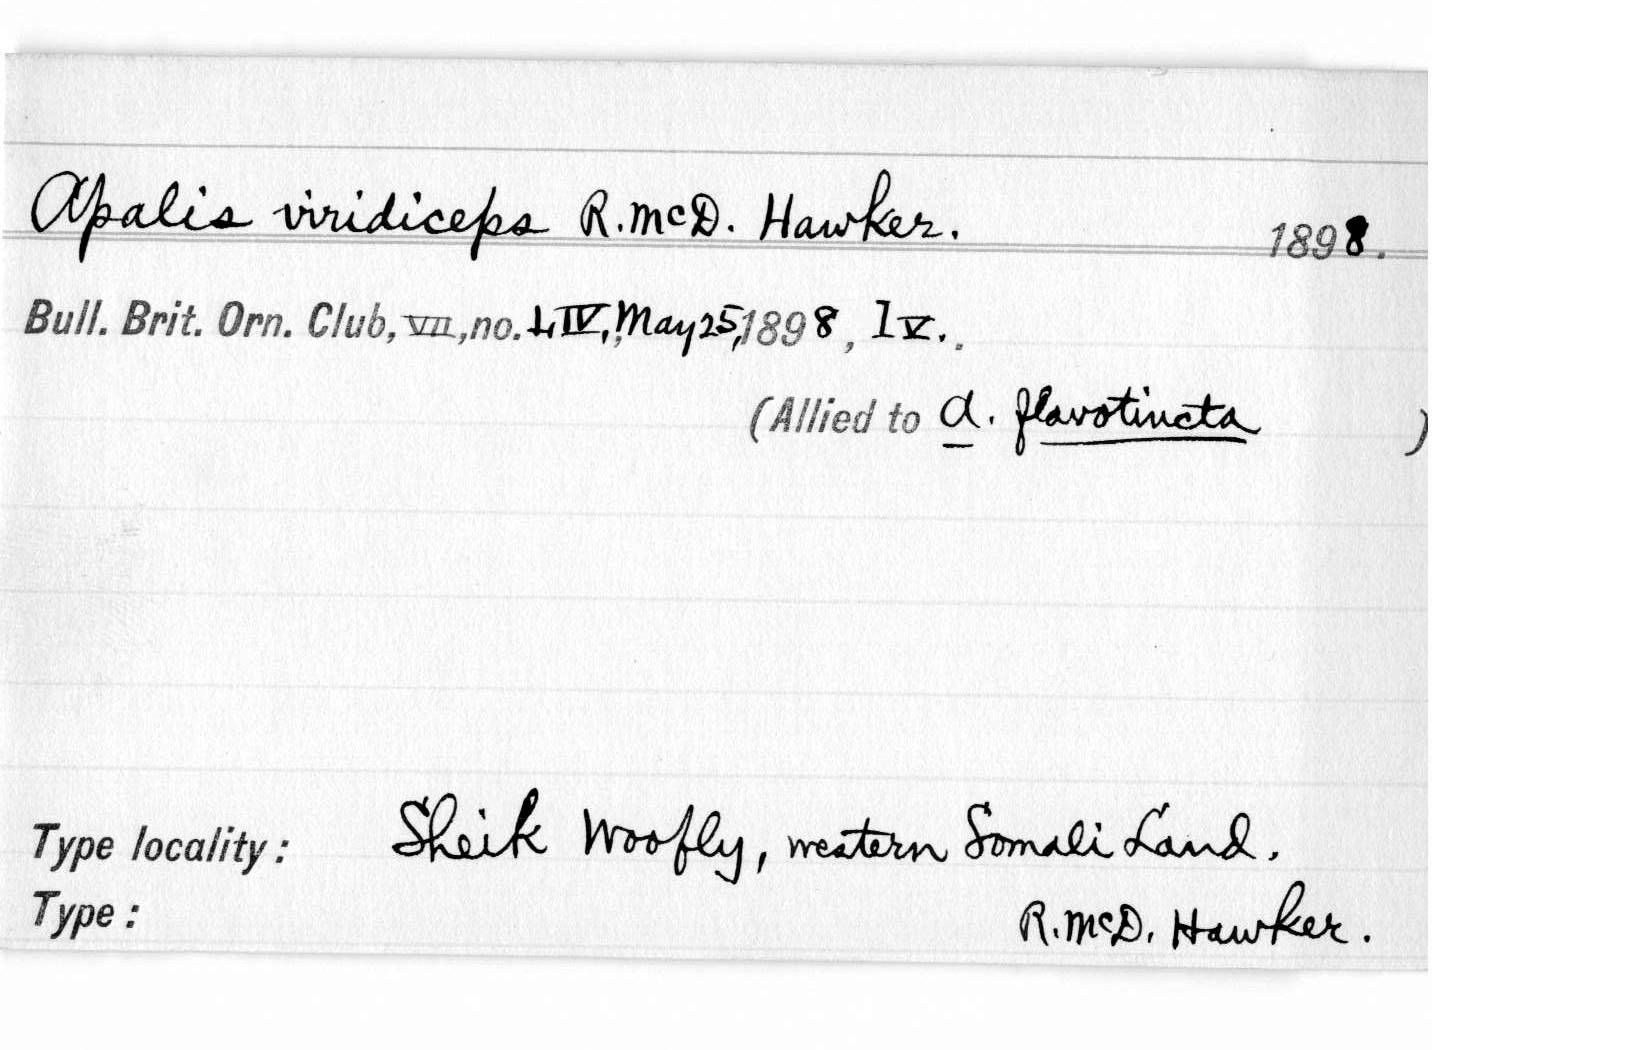 Apalis viridiceps R. McD. Hawker. 1898.
Bull. Brit. Orn. Club, VII, no. LIV, May 25, 1898, lv..
(Allied to A. flavotincta )
Type locality: Sheik Woofly, western Somali Land.
Type: R. McD. Hawker.